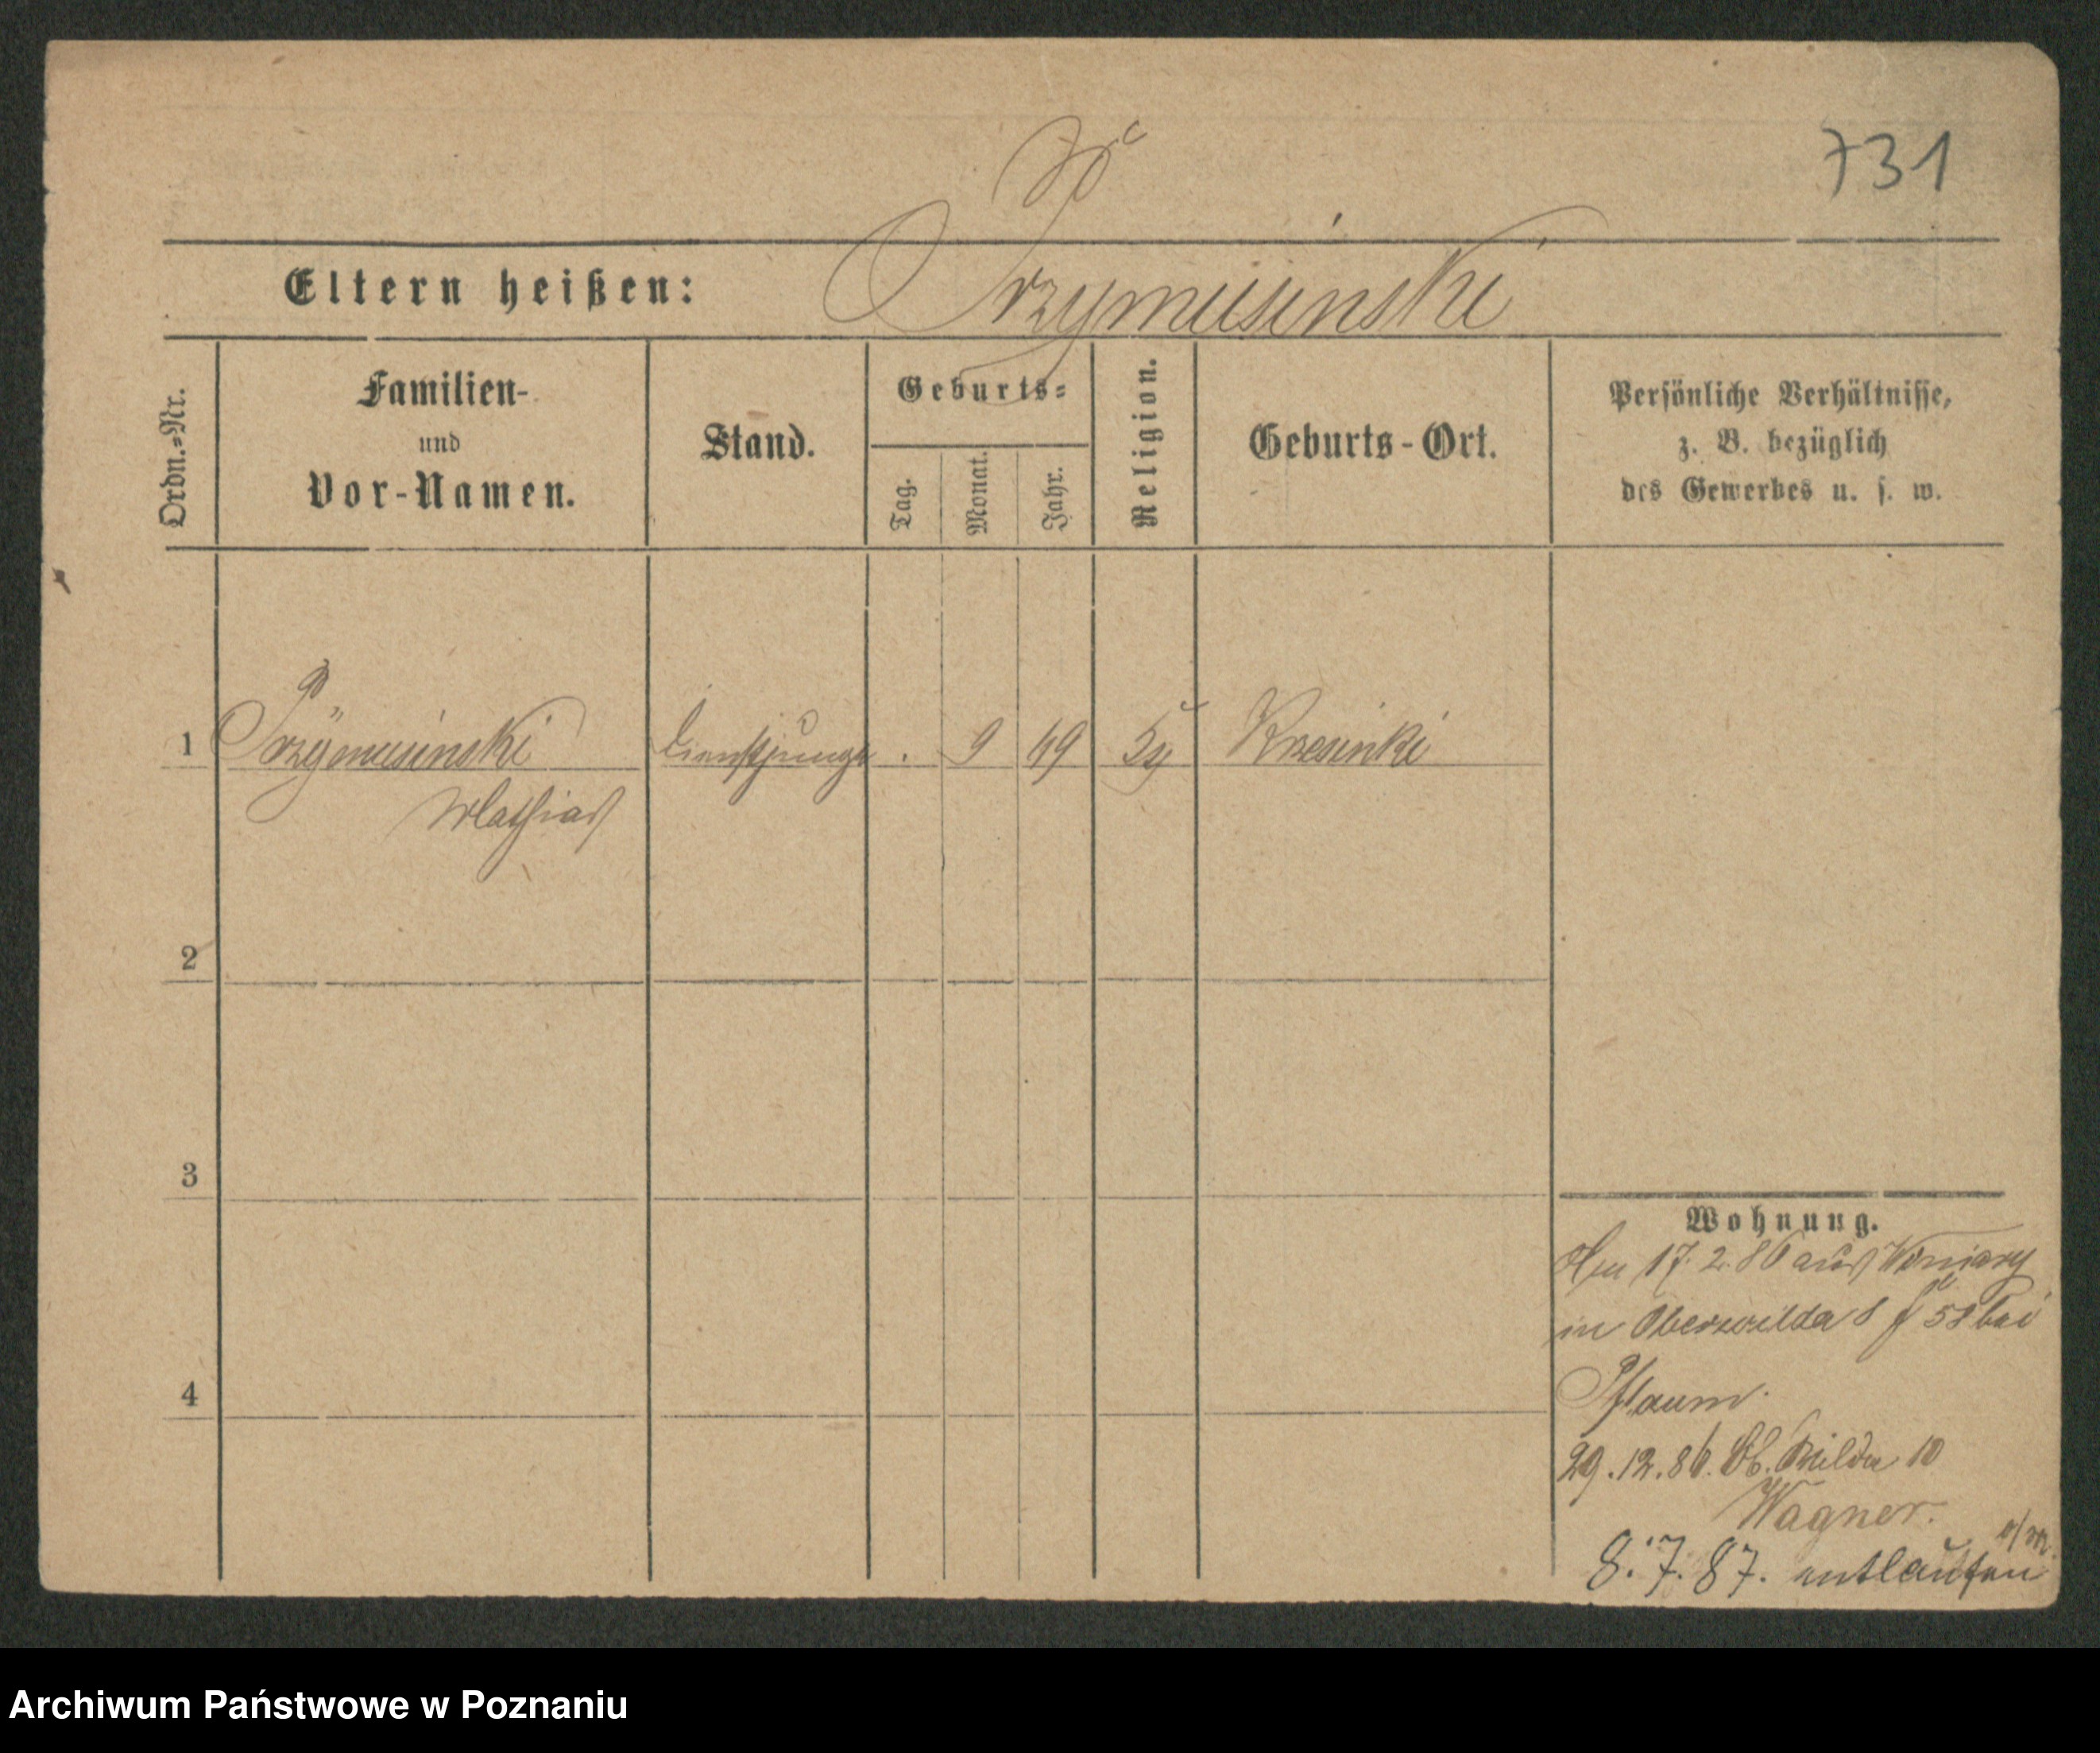 731
Eltern heißen: Przymusinski
Ordn.=Nr.
Familien-
und
Vor-Namen.
Stand.
Geburts=
Tag.
Monat.
Jahr.
Religion.
Geburts-Ort.
Persönliche Verhältnisse,
z. B. bezüglich
des Gewerbes u. s. w.
1 Przymusinski Dienstjunge . 9 69
Mathias
2
3
4
Wohnung.
17. 2. 86 aus Winiary
in Oberwilda 58 bei
Pflaum.
29. 12. 86. Ob. Wilda 10
Wagner.
8. 7. 87. entlaufen
Archiwum Państwowe w Poznaniu